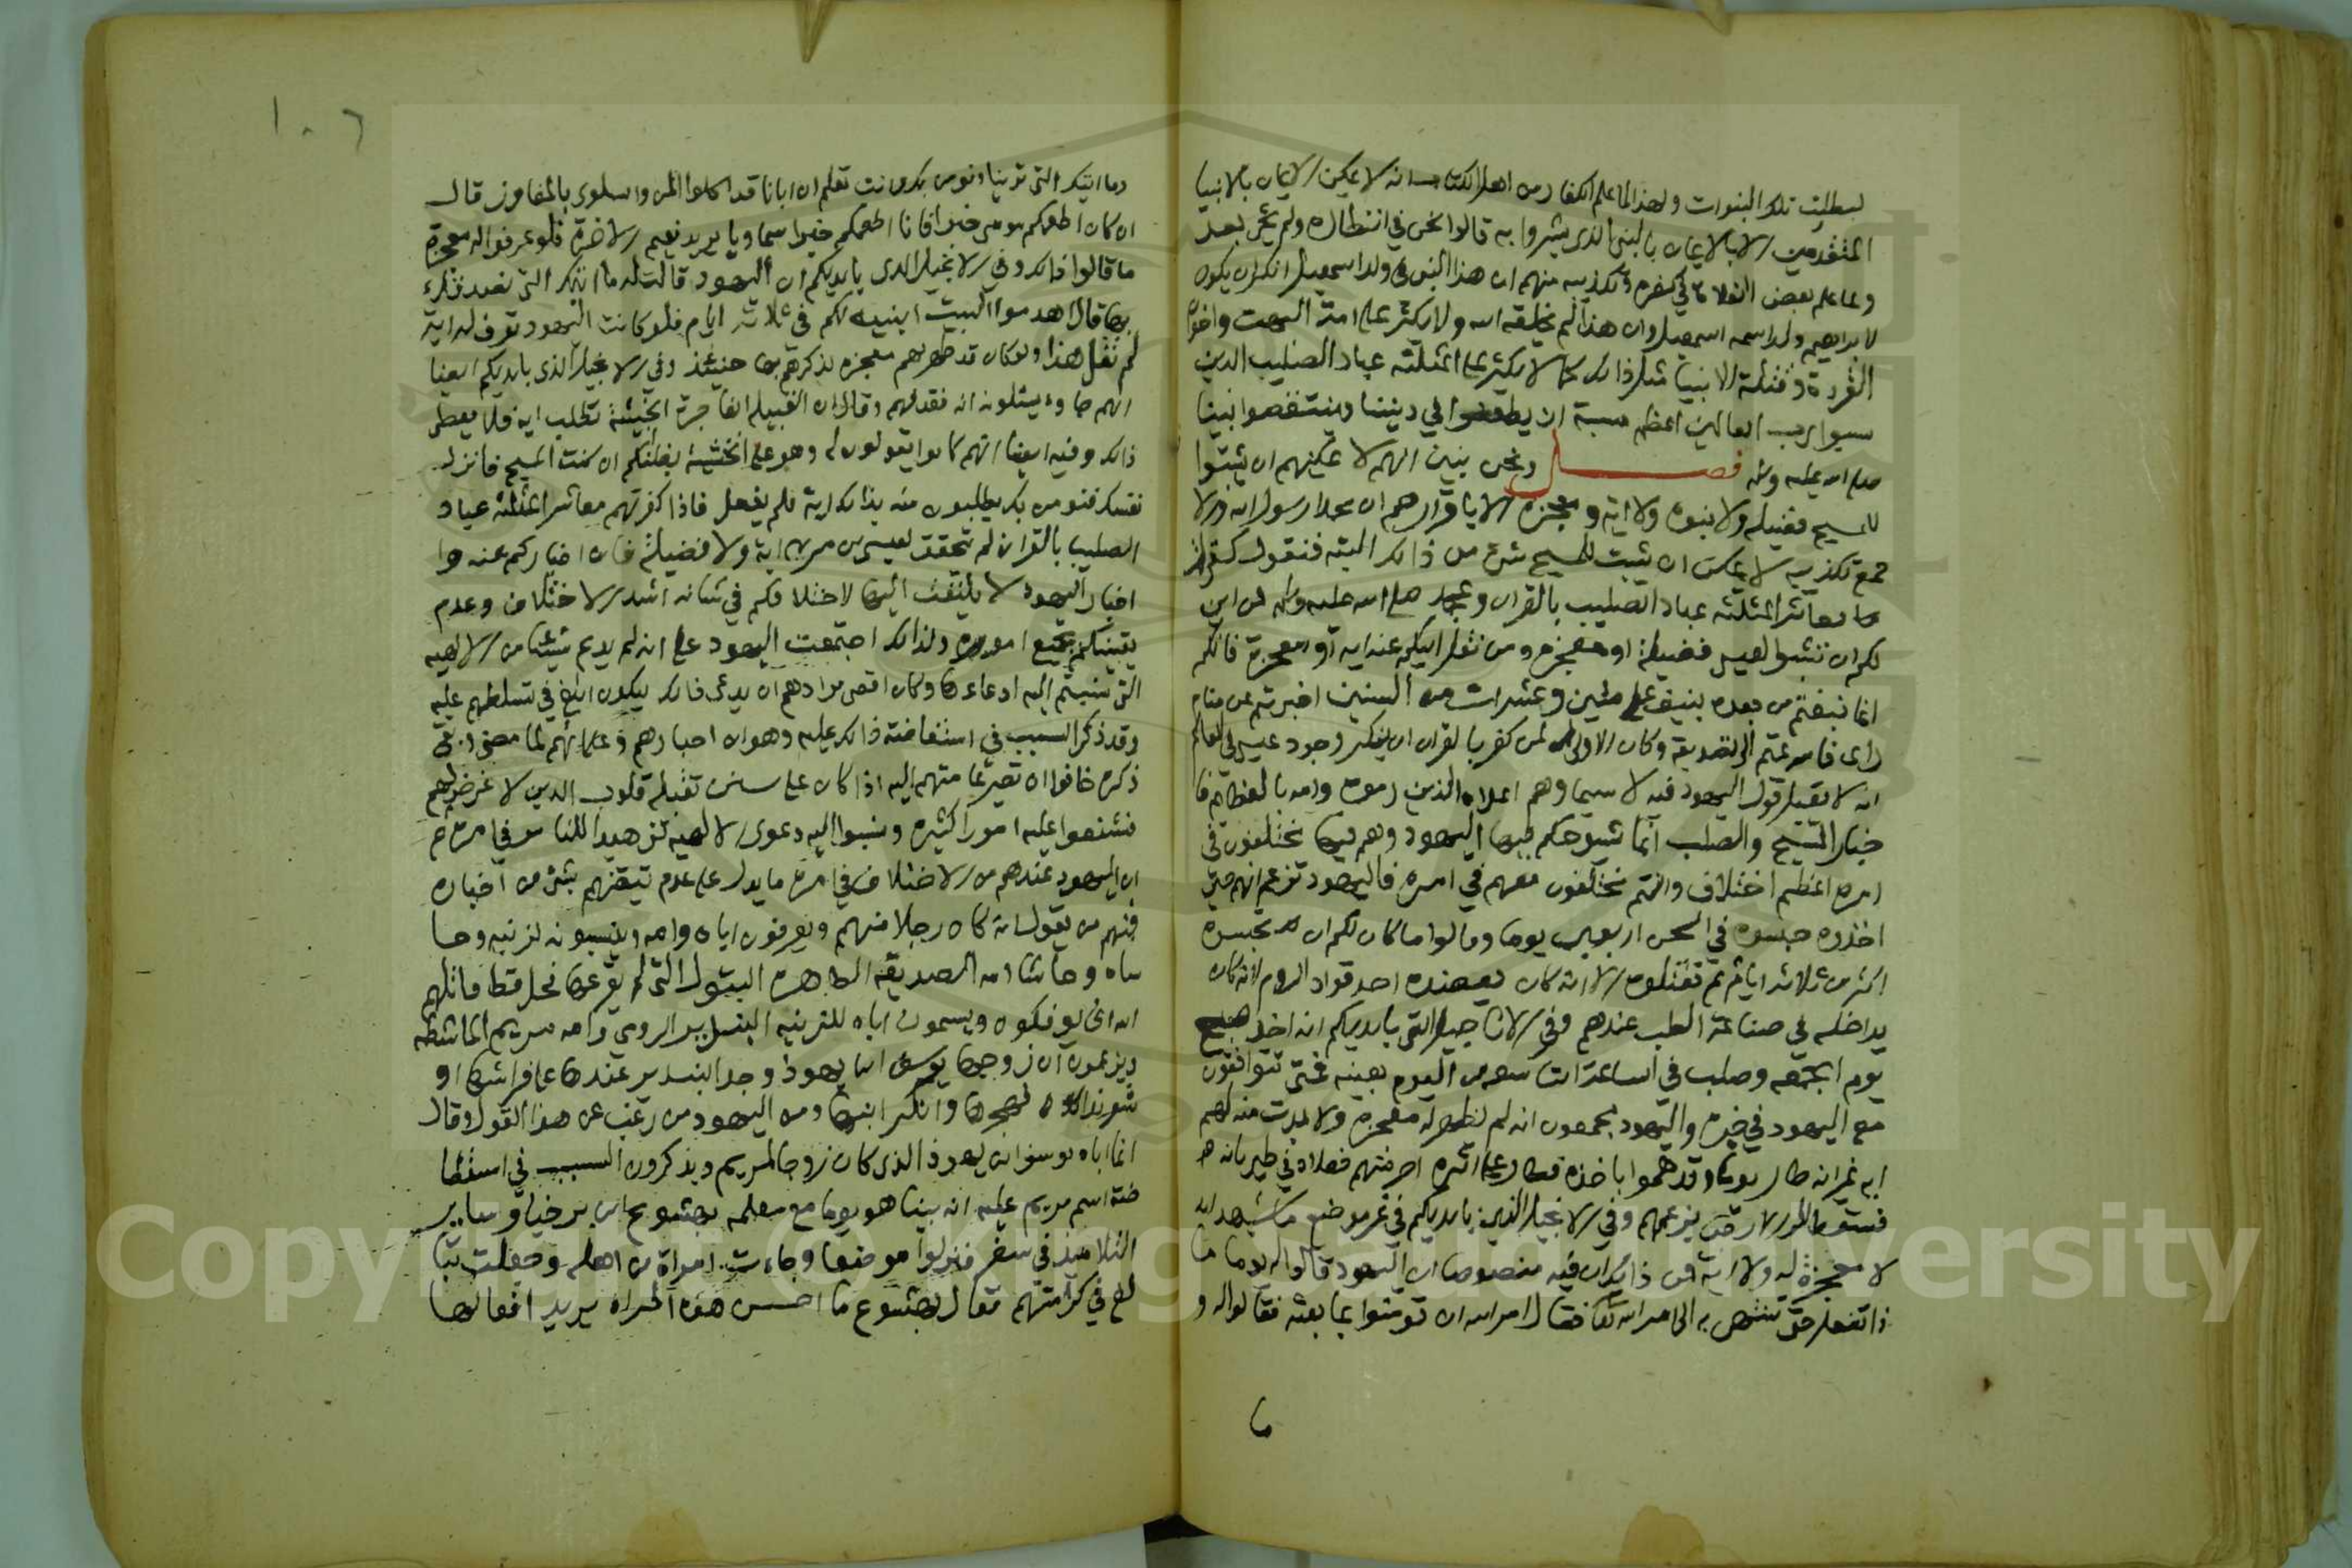 لبطلت تلك النبوات ولهذا لما علم الكفار من اهل الكتاب انه لا يمكن الايمان بالانبيا
المتقدمين الا بالايمان بالنبي الذي بشروا به قالوا نحن في انتظاره ولم يجئ بعد
ولما علم بعض الغلاة في كفره وتكذيبه منهم ان هذا النبي في ولد اسمعيل انكر ان يكون
لابراهيم ولد اسمه اسمعيل وان هذا لم يخلقه الله ولا يكثر على امة البهت واخوان
القردة وقتلة الانبيا مثل ذالك كما لا يكثر على المثلثه عباد الصليب الذين
سبوا رب العالمين اعظم مسبة ان يطعنوا في ديننا وينتقصوا نبينا
صلى الله عليه وسلم فصل ونحن نبين انهم لا يمكنهم ان يثبتوا
للمسيح فضيلة ولا نبوة ولا اية ومعجزة الا باقرارهم ان محمدا رسول الله والا
فمع تكذيبه لا يمكن ان يثبت للمسيح شئ من ذالك البته فنقول كفرتم
معاشر المثلثه عباد الصليب بالقران وبمحمد صلى الله عليه وسلم فمن اين
لكم ان تثبتوا لعيسى فضيلة او معجزة ومن نقل اليكم عنه اية او معجزة فانكم
انما تبعتم من بعده بنيف على مئين وعشرات من السنين اخبرتم عن منام
راى فاسرعتم الى تصديقه وكان الاولى لمن كفر بالقران ان ينكر وجود عيسى في العالم
انه لا يقبل قول اليهود فيه لا سيما وهم اعداه الذين رموه وامه بالعظايم فا
خبار المسيح والصلب انما شيوخكم فيها اليهود وهم فيها مختلفون في
امره اعظم اختلاف وانتم مختلفون معهم في امره فاليهود تزعم انهم حين
اخذوه حبسوه في السجن اربعين يوما وقالوا ما كان لكم ان تحبسوه
اكثر من ثلاثة ايام ثم تقتلوه الا انه كان يعضده احد قواد الروم لانه كان
يداخله في صناعة الطب عندهم وفي الاناجيل التي بايديكم انه اخذ صبح
يوم الجمعه وصلب في الساعة التاسعه من اليوم بعينه فمتى تتوافقون
مع اليهود في خبره واليهود مجمعون انه لم تظهر له معجزة ولا بدرت منه لهم
اية غير انه طار يوما وقد هموا باخذه فطار على اثره اخر منهم فعلاه في طيرانه
فسقط الى الارض بزعمهم وفي الانجيل الذي بايديكم في غير موضع ما يشهد انه
لا معجزة له ولا اية فمن ذالك ان فيه منصوصا ان اليهود قالوا له يوما ما
ذا تفعل حتى ننتهي به الى امر الله تعالى فقال امر الله ان تومنوا بما بعثه فقالوا له و
ما
١٠٦
وما ايتك التي ترينا ونومن بك وانت تعلم ان ابانا قد اكلوا المن والسلوى بالمفاوز قال
ان كان اطعمكم موسى خبزا فانا اطعمكم خبزا سماويا يريد نعيم الاخرة فلو عرفوا له معجزة
ما قالوا ذالك وفي الانجيل الذي بايديكم ان اليهود قالت له ما ايتك التي نصدقك
بها قال اهدموا البيت ابنيه لكم في ثلاثة ايام فلو كانت اليهود تعرف له اية
لم تقل هذا ولو كان قد ظهر لهم معجزة لذكرهم بها حينئذ وفي الانجيل الذي بايديكم ايضا
انهم جاوه يسئلونه اية فقدفهم وقال ان القبيلة الفاجرة الخبيثة تطلب اية فلا تعطى
ذالك وفيه ايضا انهم كانوا يقولون له وهو على الخشبة بظنكم ان كنت المسيح فانزل
نفسك فنومن بك يطلبون منه بذالك اية فلم يفعل فاذا كفرتم معاشر المثلثه عباد
الصليب بالقران لم تتحقق لعيسى بن مريم اية ولا فضيلة فان اخباركم عنه وا
اخبار اليهود لا يلتفت اليها لاختلافكم في شانه اشد الاختلاف وعدم
يقينكم بجميع اموره ولذالك اجتمعت اليهود على انه لم يدع شيئا من الالهية
التي نسبتم اليه ادعاءها وكان اقصى مرادهم ان يدعى ذالك ليكون ابلغ في تسلطهم عليه
وقد ذكر السبب في استفاضة ذالك عليه وهو ان احبارهم وعلمائهم لما مضى وبقى
ذكره خافوا ان تصير عامتهم اليه اذ كان على سنن تقبله قلوب الذين لا غرض لهم
فشنعوا عليه امورا كثيرة ونسبوا اليه دعوى الالهية تزهيدا للناس في امره ثم
ان اليهود عندهم من الاختلاف في امره ما يدل على عدم تيقنهم بشئ من اخباره
فمنهم من يقول انه كان رجلا منهم ويعرفون اباه وامه وينسبونه لزنيه وحا
شاه وحاشا امه الصديقة الطاهرة البتول التي لم يقرعها فحل قط قاتلهم
الله انى يوفكون ويسمون اباه للزنيه البنديرا الرومي وامه مريم الماشطه
ويزعمون ان زوجها يوسف بن يهوذا وجد البنديرا عندها على فراشها و
شعر بذالك فهجرها وانكر ابنها ومن اليهود من رغب عن هذا القول وقال
انما اباه يوسف ابن يهوذا الذي كان زوجا لمريم ويذكرون السبب في استفا
ضة اسم مريم عليه انه بينا هو يوما مع معلمه يهشوع ابن برخيا وساير
التلاميذ في سفر فنزلوا موضعا وجاءت امراة من اهله وجعلت تبا
لغ في كرامتهم فقال يهشوع ما احسن هذه المراه يريد افعالها